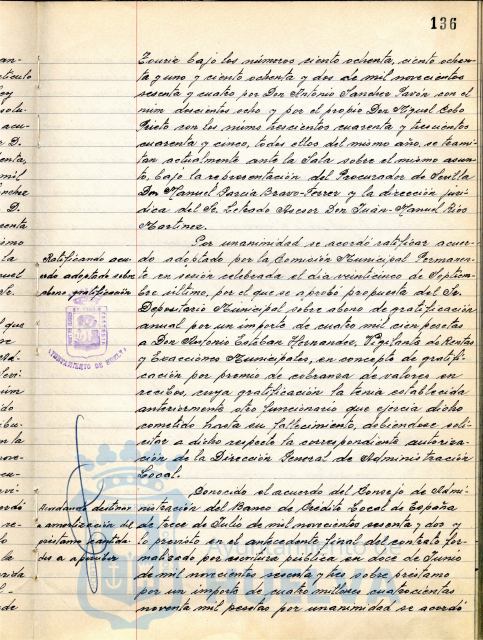 136
Touriz bajo los números ciento ochenta, ciento ochen-
ta y uno y ciento ochenta y dos de mil novecientos
sesenta y cuatro por Don Antonio Sanchez Pavón con el
núm doscientos ocho y por el propio Don Miguel Cobo
Prieto con los núms trescientos cuarenta y trescientos
cuarenta y cinco, todos ellos del mismo año, se trami-
tan actualmente ante la Sala sobre el mismo asun-
to, bajo la representación del Procurador de Sevilla
Don Manuel García Bravo-Ferrer y la dirección jurí-
dica del Sr. Letrado Asesor Don Juan-Manuel Rios
Martinez.
Por unanimidad se acordó ratificar acuer-
do adoptado por la Comisión Municipal Permanen-
te en sesión celebrada el día veinticinco de Septiem-
bre último, por el que se aprobó propuesta del Sr.
Depositario Municipal sobre abono de gratificación
anual por un importe de cuatro mil cien pesetas
a Don Antonio Esteban Hernandez, Vigilante de Rentas
y Exacciones Municipales, en concepto de gratifi-
cación por premio de cobranza de valores en
recibos, cuya gratificación la tenía establecida
anteriormente otro funcionario que ejercía dicho
cometido hasta su fallecimiento, debiéndose soli-
citar a dicho respecto la correspondiente autoriza-
ción de la Dirección General de Administración
Local.
Conocido el acuerdo del Consejo de Admi-
nistración del Banco de Crédito Local de España
de trece de Julio de mil novecientos sesenta y dos y
lo previsto en el antecedente final del contrato for-
malizado por escritura pública en doce de Junio
de mil novecientos sesenta y tres sobre préstamo
por un importe de cuatro millones cuatrocientas
noventa mil pesetas por unanimidad se acordó
Ratificando acu-
erdo adoptado sobre
abono gratificación
AYUNTAMIENTO DE HUELVA
destinar
a amortización del
préstamo cantida-
des a aportar
Ayuntamiento de